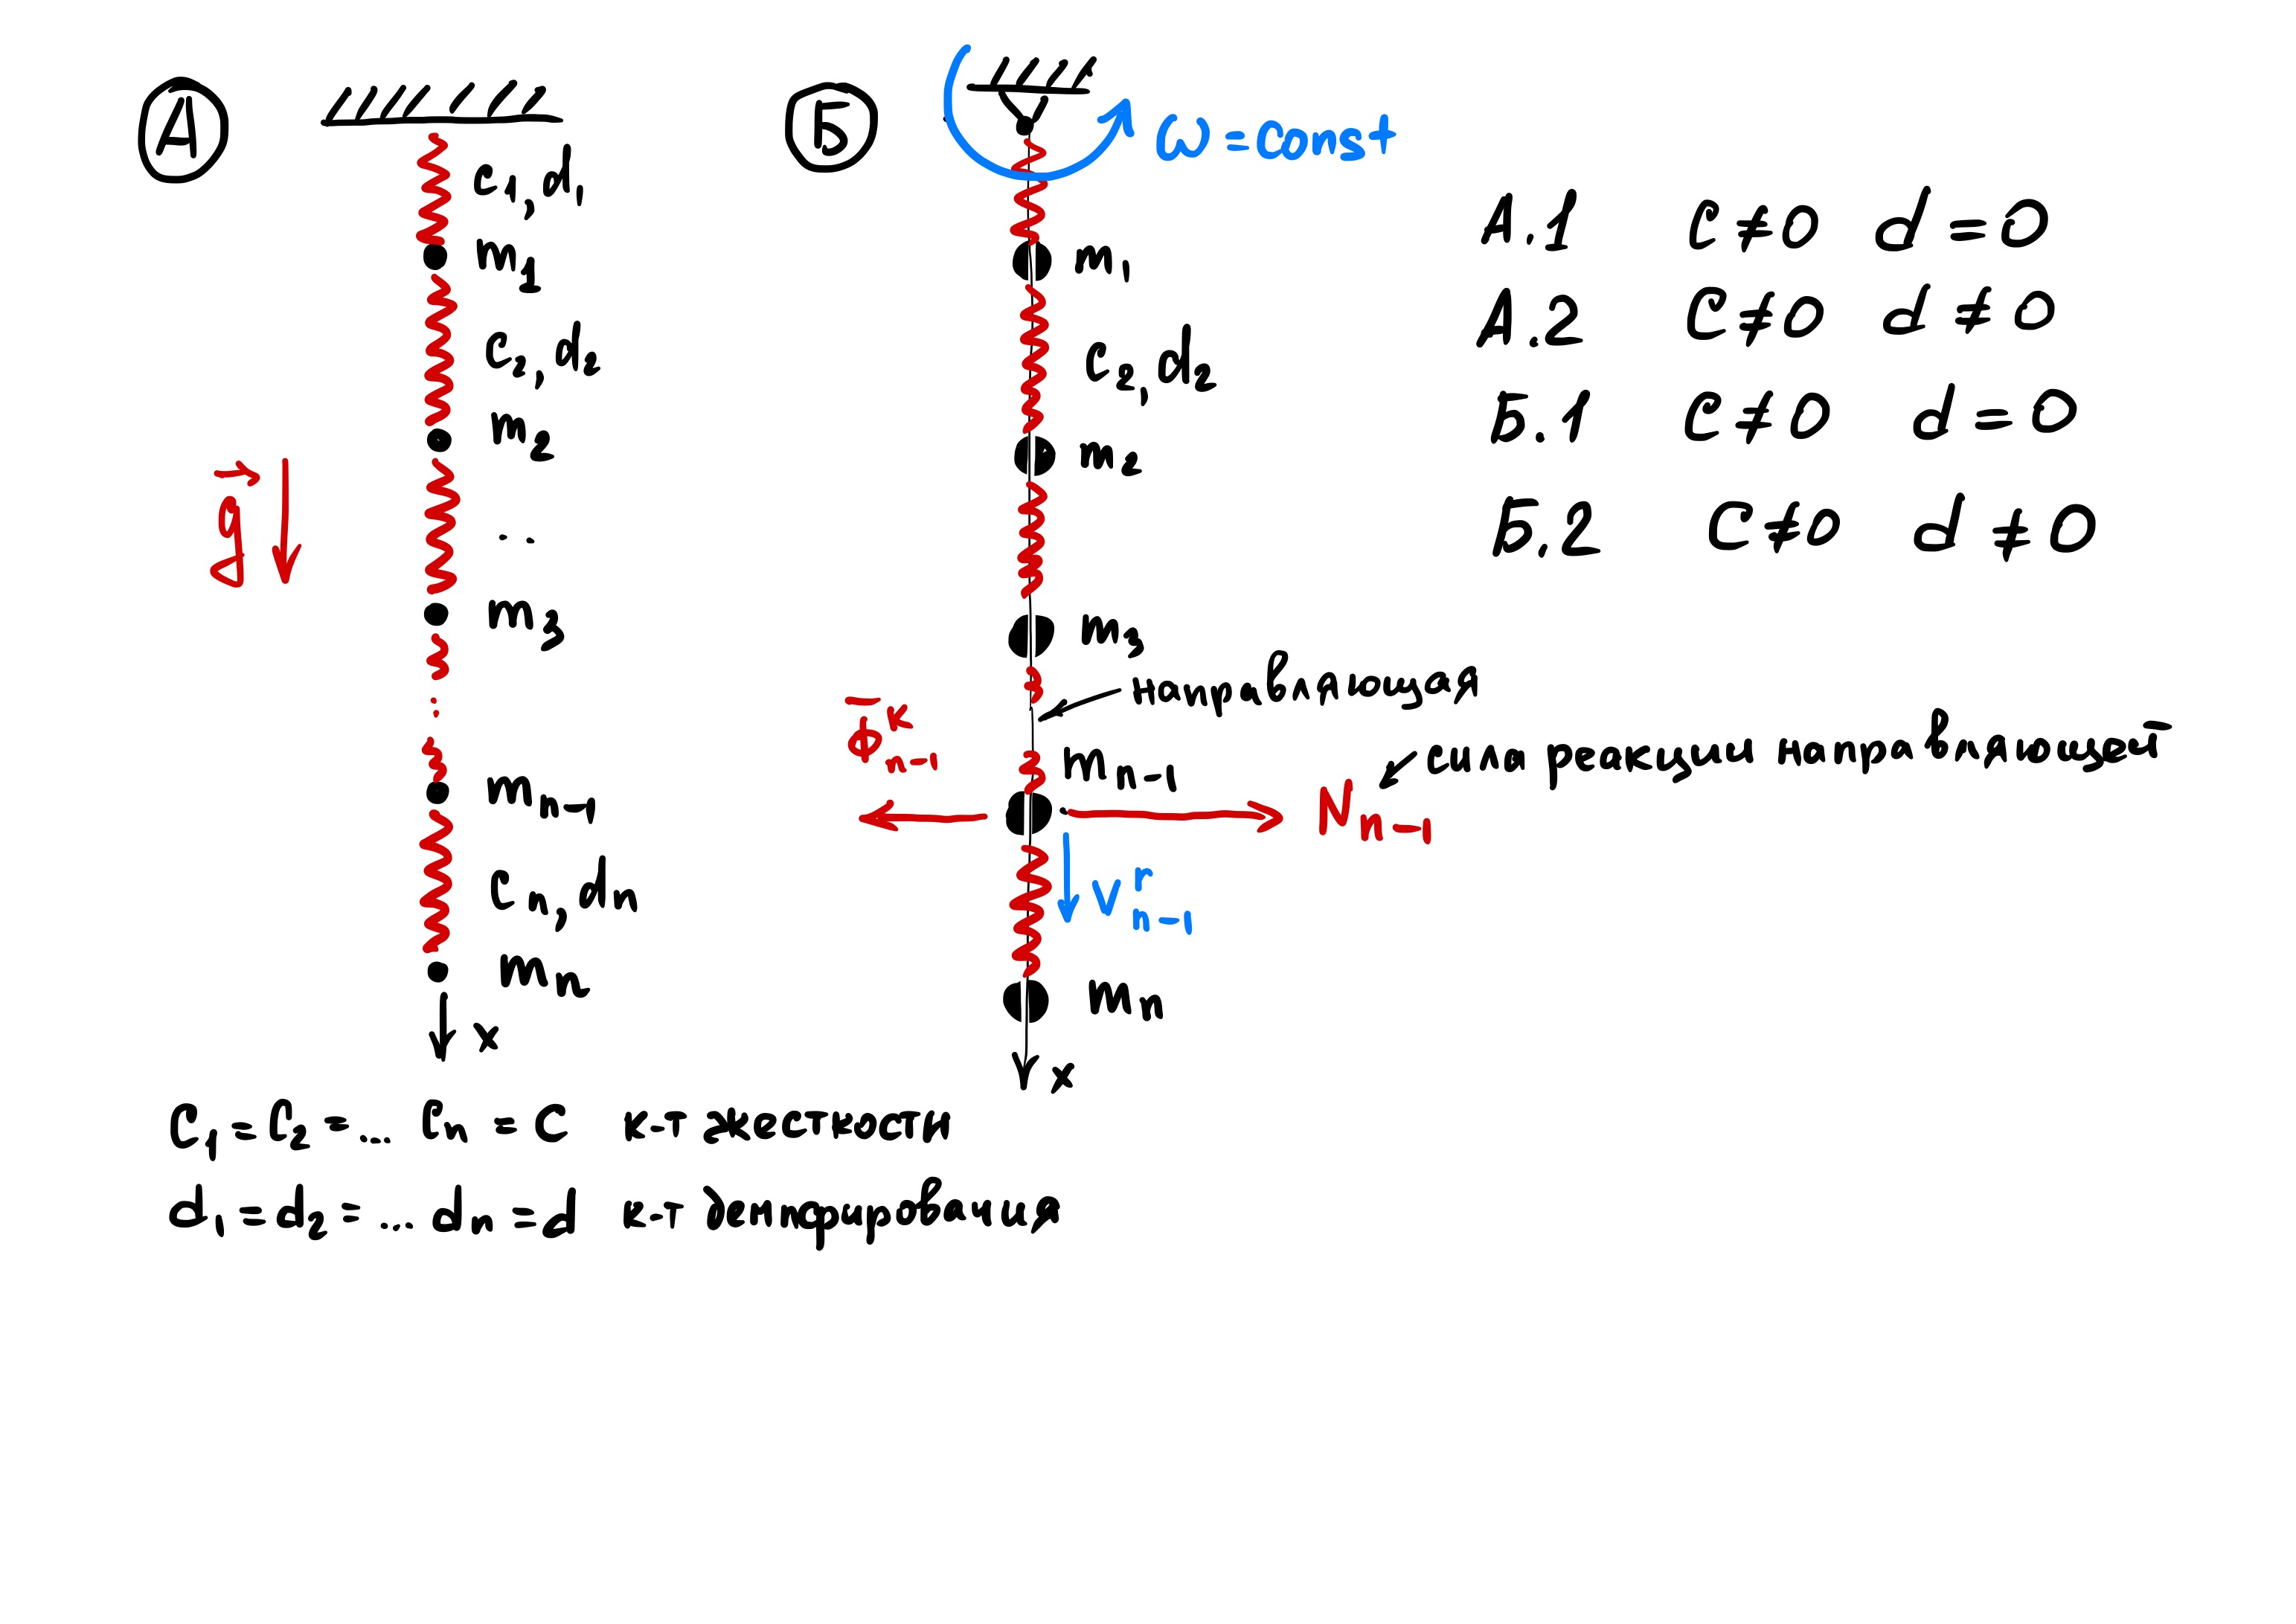 А
c₁, d₁
m₁
c₂, d₂
m₂
g
..
m₃
mₙ₋₁
cₙ, dₙ
mₙ
x
Б
ω = const
m₁
c₂, d₂
m₂
m₃
направляющая
Φᵏₙ₋₁
mₙ₋₁
сила реакции направляющей
Nₙ₋₁
vʳₙ₋₁
mₙ
x
А.1 C ≠ 0 d = 0
А.2 C ≠ 0 d ≠ 0
Б.1 C ≠ 0 d = 0
Б.2 C ≠ 0 d ≠ 0
C₁ = C₂ = ... Cₙ = C к-т жесткости
d₁ = d₂ = ... dₙ = d к-т демпфирования